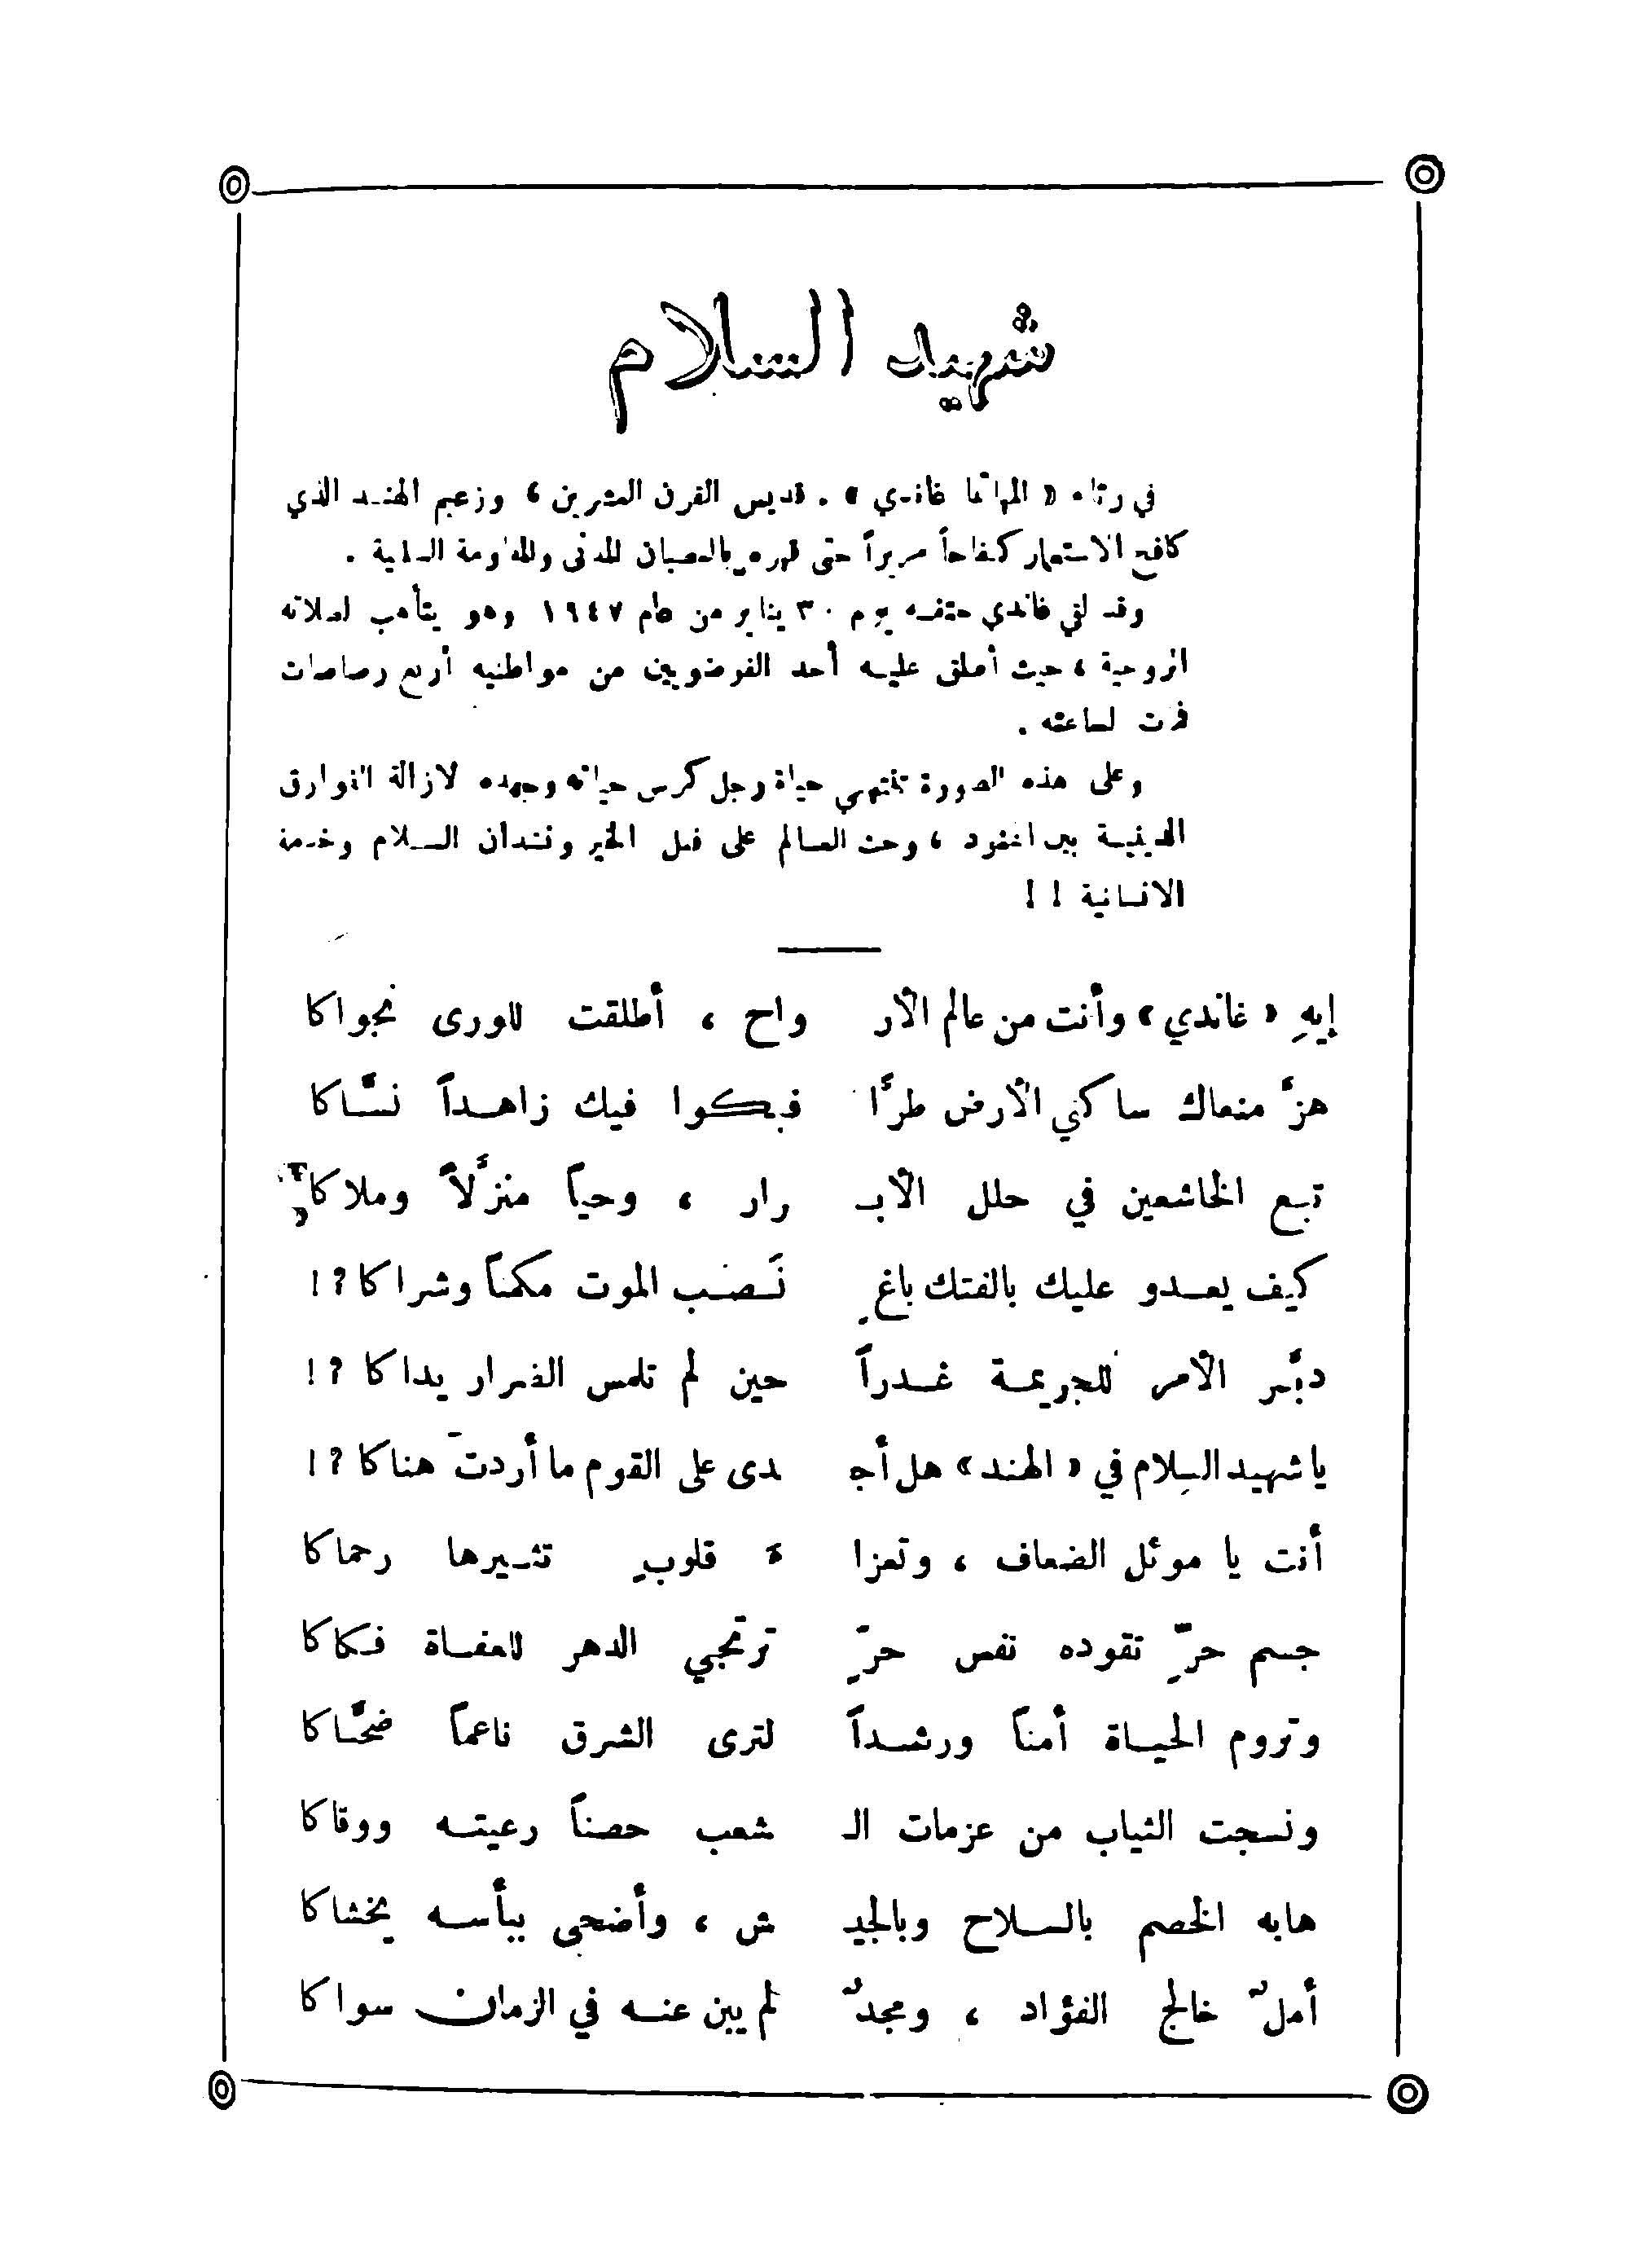 شهيد السلام
في رثاء « المهاتما غاندي » . قديس القرن العشرين ، وزعيم الهند الذي
كافح الاستعمار كفاحاً مريراً حتى قهره بالعصيان المدني والمقاومة السلمية .
وقد لقي غاندي حتفه يوم ٣٠ يناير من عام ١٩٤٧ وهو يتأهب لصلاته
الروحية ، حيث أطلق عليه أحد الفوضويين من مواطنيه أربع رصاصات
فمات لساعته .
وعلى هذه الصورة تنتهي حياة رجل كرس حياته وجهده لازالة الفوارق
الدينية بين الهنود ، وحث العالم على فعل الخير ونشدان السلام وخدمة
الانسانية ! !
إيهِ « غاندي » وأنت من عالم الأر واح ، أطلقت للورى نجواكا
هزَّ منعاك ساكني الأرض طرَّا فبكوا فيك زاهداً نسَّاكا
تبع الخاشعين في حلل الأبـ رار ، وحياً منزَّلاً وملاكا
كيف يعدو عليك بالفتك باغٍ نَصب الموت مكمناً وشراكا ؟!
دبَّر الأمر للجريمة غدراً حين لم تلمس الفرار يداكا ؟!
يا شهيد السلام في « الهند » هل أجـ دى على القوم ما أردتَ هناكا ؟!
أنت يا موئل الضعاف ، وتعزا ءَ قلوبٍ تثيرها رحماكا
جسم حرٍّ تقوده نفس حرٍّ ترتجي الدهر للعفاة فكاكا
وتروم الحياة أمناً ورشداً لترى الشرق ناعماً ضحَّاكا
ونسجت الثياب من عزمات الـ شعب حصناً رعيته ووقاكا
هابه الخصم بالسلاح وبالجيـ ش ، وأضحى ببأسه يخشاكا
أملٌ خالج الفؤاد ، ومجدٌ لم يبن عنه في الزمان سواكا